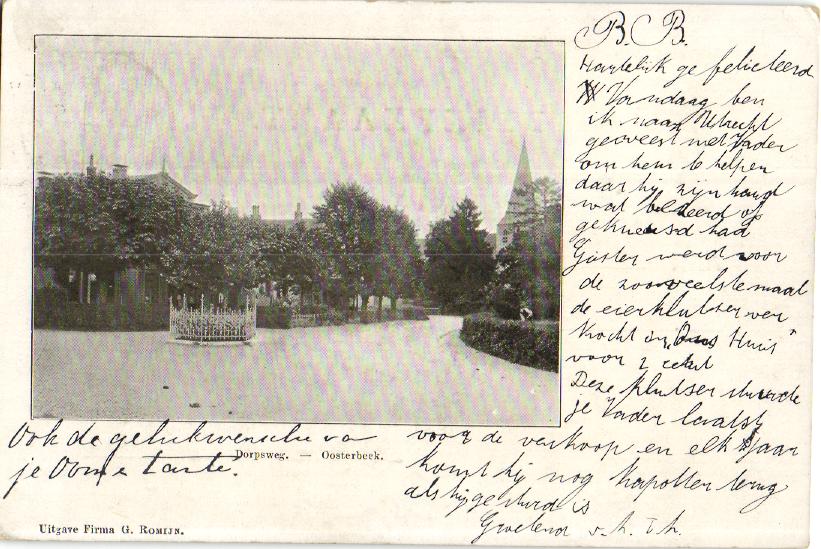 B. B.
Hartelijk gefeliciteerd
Vandaag ben
ik naar Utrecht
geweest met Vader
om hem te helpen
daar hij zijn hand
wat bezeerd of
gekneusd had
Gister werd voor
de zooveelste maal
de eierklutser ver
kocht in „Ons Huis"
voor 2 cent
Deze klutser stuurde
je Vader laatst
voor de verkoop en elk jaar
komt hij nog kapotter terug
als hij gestuurd is
Groetend
Ook de gelukwensche va
je Oom e tante.
Dorpsweg. — Oosterbeek.
Uitgave Firma G. Romijn.